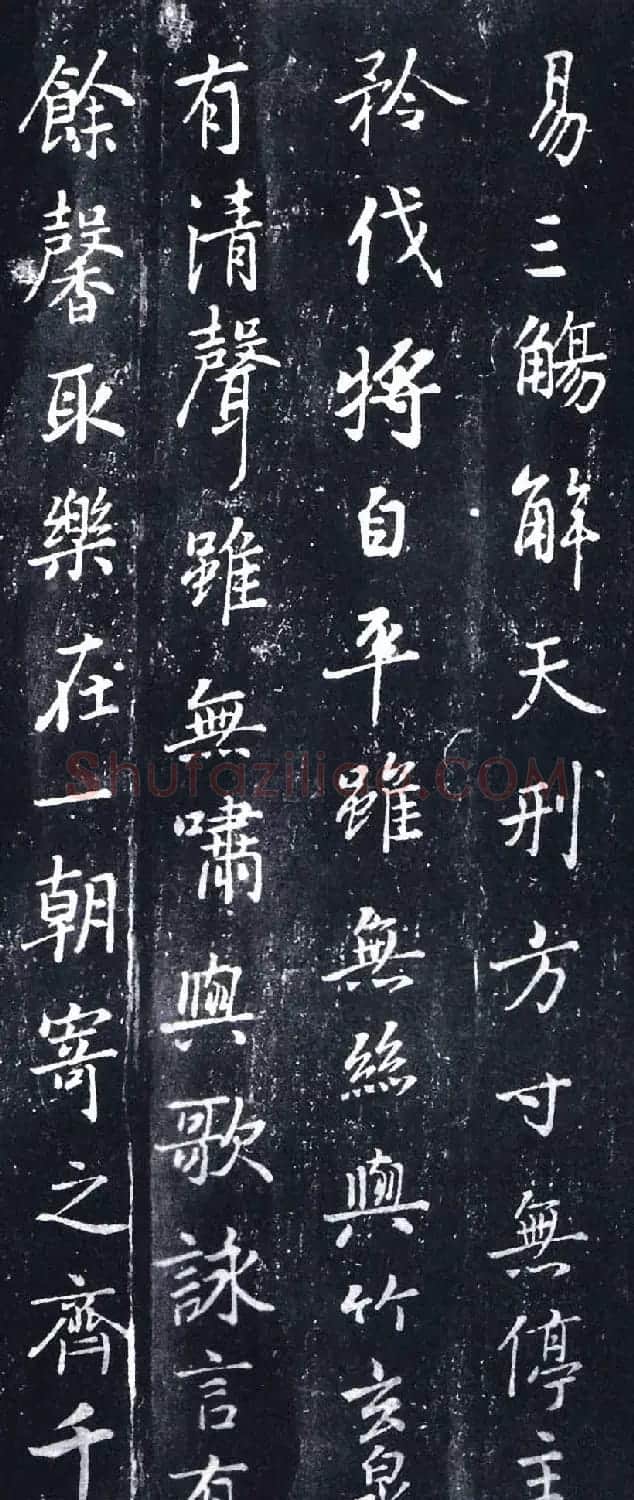 易三觴解天刑方寸無停主
矜伐將自平雖無絲與竹玄泉
有清聲雖無嘯與歌詠言有
餘馨取樂在一朝寄之齊千
Shufaziliao.COM